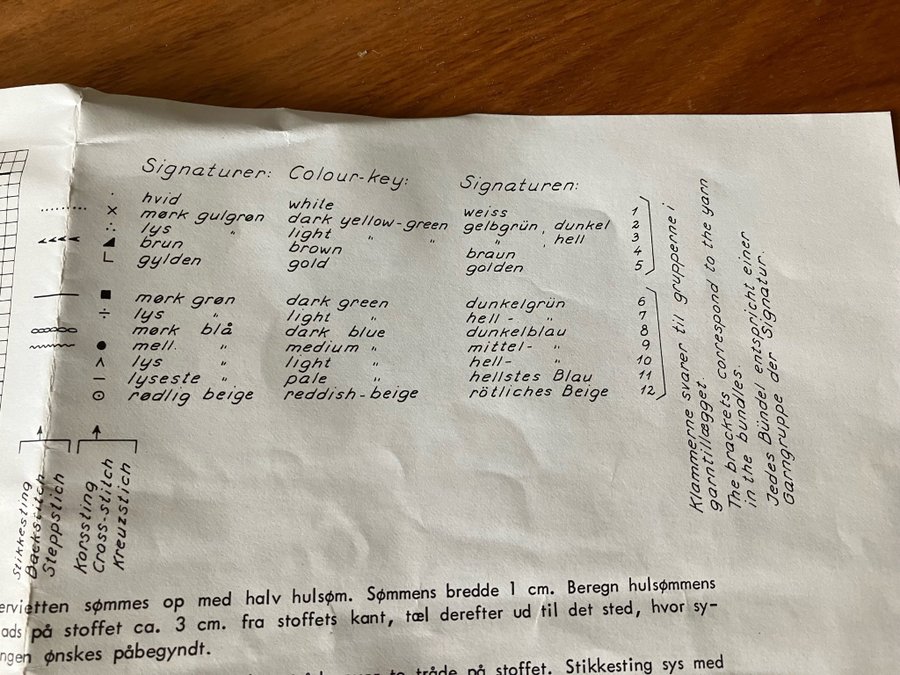 Signaturer: Colour-key: Signaturen:
· hvid white weiss 1
× mørk gulgrøn dark yellow-green gelbgrün, dunkel 2
∴ lys " light " " " , hell 3
◢ brun brown braun 4
∟ gylden gold golden 5
■ mørk grøn dark green dunkelgrün 6
÷ lys " light " hell- " 7
mørk blå dark blue dunkelblau 8
● mell. " medium " mittel- " 9
^ lys " light " hell- " 10
– lyseste " pale " hellstes Blau 11
⊙ rødlig beige reddish-beige rötliches Beige 12
Klammerne svarer til grupperne i
garntillægget.
The brackets correspond to the yarn
in the bundles
Jedes Bündel entspricht einer
Garngruppe der Signatur.
Stikkesting
Backstitch
Steppstich
Korssting
Cross-stitch
Kreuzstich
ervietten sømmes op med halv hulsøm. Sømmens bredde 1 cm. Beregn hulsømmens
ads på stoffet ca. 3 cm. fra stoffets kant, tæl derefter ud til det sted, hvor sy-
ngen ønskes påbegyndt.
to tråde på stoffet. Stikkesting sys med